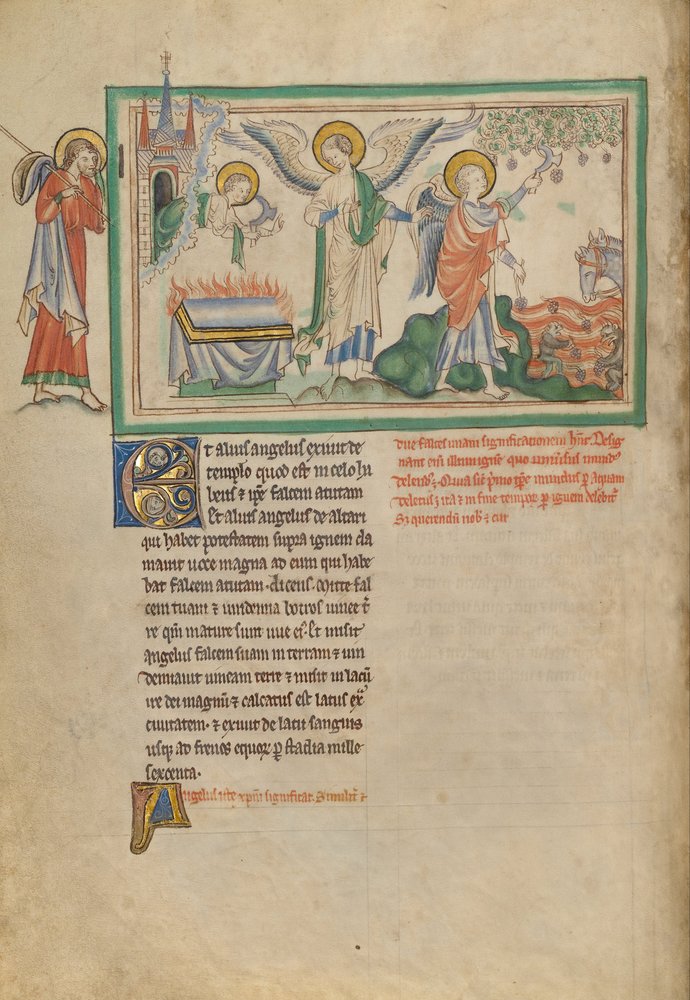 Et alius angelus exivit de
templo quod est in celo ha
bens ⁊ ip̃e falcem acutam
Et alius angelus de altari
qui habet potestatem supra ignem cla
mavit voce magna ad eum qui habe
bat falcem acutam. dicens. Mitte fal
cem tuam ⁊ vindemia botros vinee t̃
re qm̃ mature sunt uve eiꝰ. Et misit
angelus falcem suam in terram ⁊ vin
demiavit vineam terre ⁊ misit in lacũ
ire dei magnũ ⁊ calcatus est lacus ex̃
civitatem. ⁊ exivit de lacu sanguis
usqꝫ ad frenos equoꝝ ꝑ stadia mille
sexcenta.
Angelus iste xp̃m significat. Similit̃ ⁊
due falces unam significationem hñt. Desig
nant eñi illum ignẽ quo universus mundꝰ
delebit̃. Quia sic̃ primo tp̃e mundus ꝑ aquam
deletus ē ita ⁊ in fine tempoꝝ ꝑ ignem delebit̃
Sꝫ querendũ nob̃ ē cur